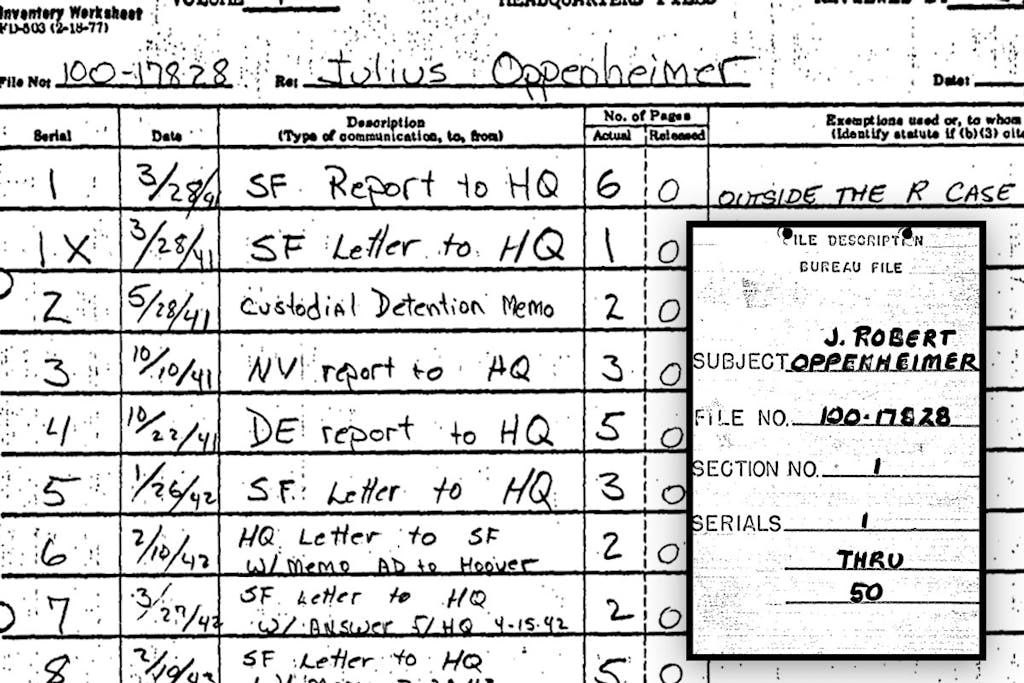 Inventory Worksheet
FD-503 (2-18-77)
File No: 100-17828 Re: Julius Oppenheimer Date:
Serial Date Description
(Type of communication, to, from) No. of Pages
Actual Released Exemptions used or, to whom
(Identify statute if (b)(3)
1 3/28/41 SF Report to HQ 6 0 OUTSIDE THE R CASE
1X 3/28/41 SF Letter to HQ 1 0
2 5/28/41 Custodial Detention Memo 2 0
3 10/10/41 NY report to HQ 3 0
4 10/22/41 DE report to HQ 5 0
5 1/26/42 SF Letter to HQ 3 0
6 2/10/42 HQ Letter to SF
W/Memo AD to Hoover 2 0
7 3/27/42 SF Letter to HQ
W/ Answer 5/HQ 4-15-42 2 0
8 SF Letter to HQ 5 0
FILE DESCRIPTION
BUREAU FILE
SUBJECT J. ROBERT
OPPENHEIMER
FILE NO. 100-17828
SECTION NO. 1
SERIALS 1
THRU
50